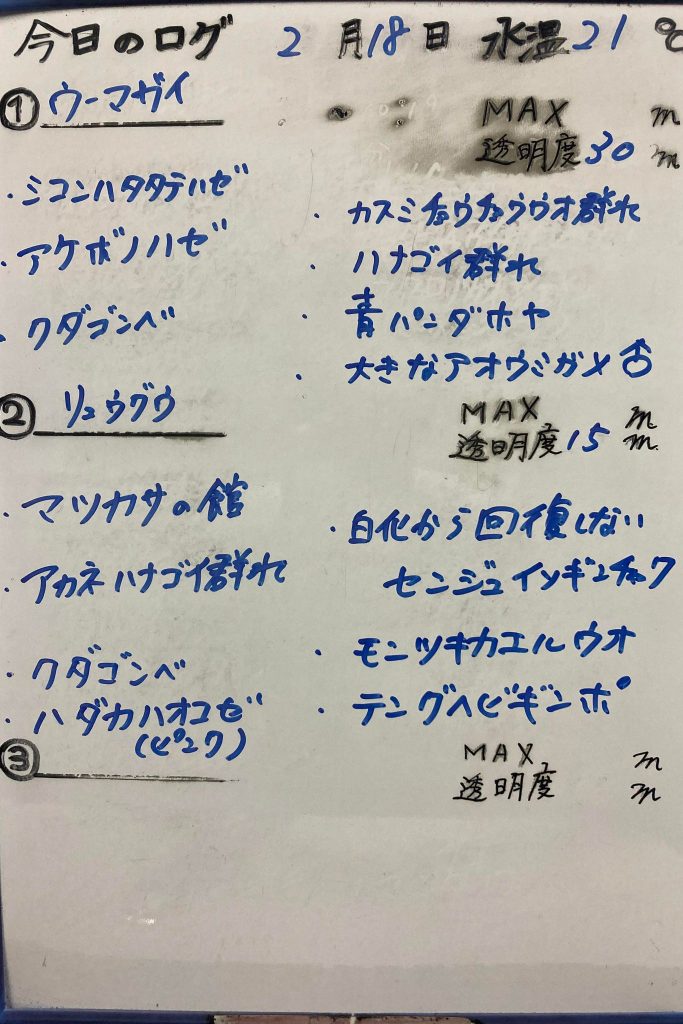 今日のログ 2月18日 水温21℃
① ウーマガイ
MAX m
透明度30m
・シコンハタタテハゼ
・アケボノハゼ
・クダゴンベ
・カスミチョウチョウウオ群れ
・ハナゴイ群れ
・青パンダホヤ
・大きなアオウミガメ♂
② リュウグウ
MAX m
透明度15m
・マツカサの館
・アカネハナゴイ群れ
・クダゴンベ
・ハダカハオコゼ
(ピンク)
・白化から回復しない
センジュイソギンチャク
・モンツキカエルウオ
・テングヘビギンポ
③
MAX m
透明度 m